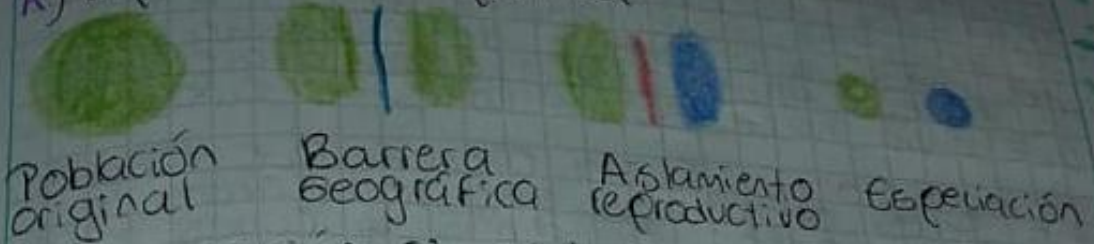 Población
original
Barrera
Geográfica
Aslamiento
reproductivo
Especiación